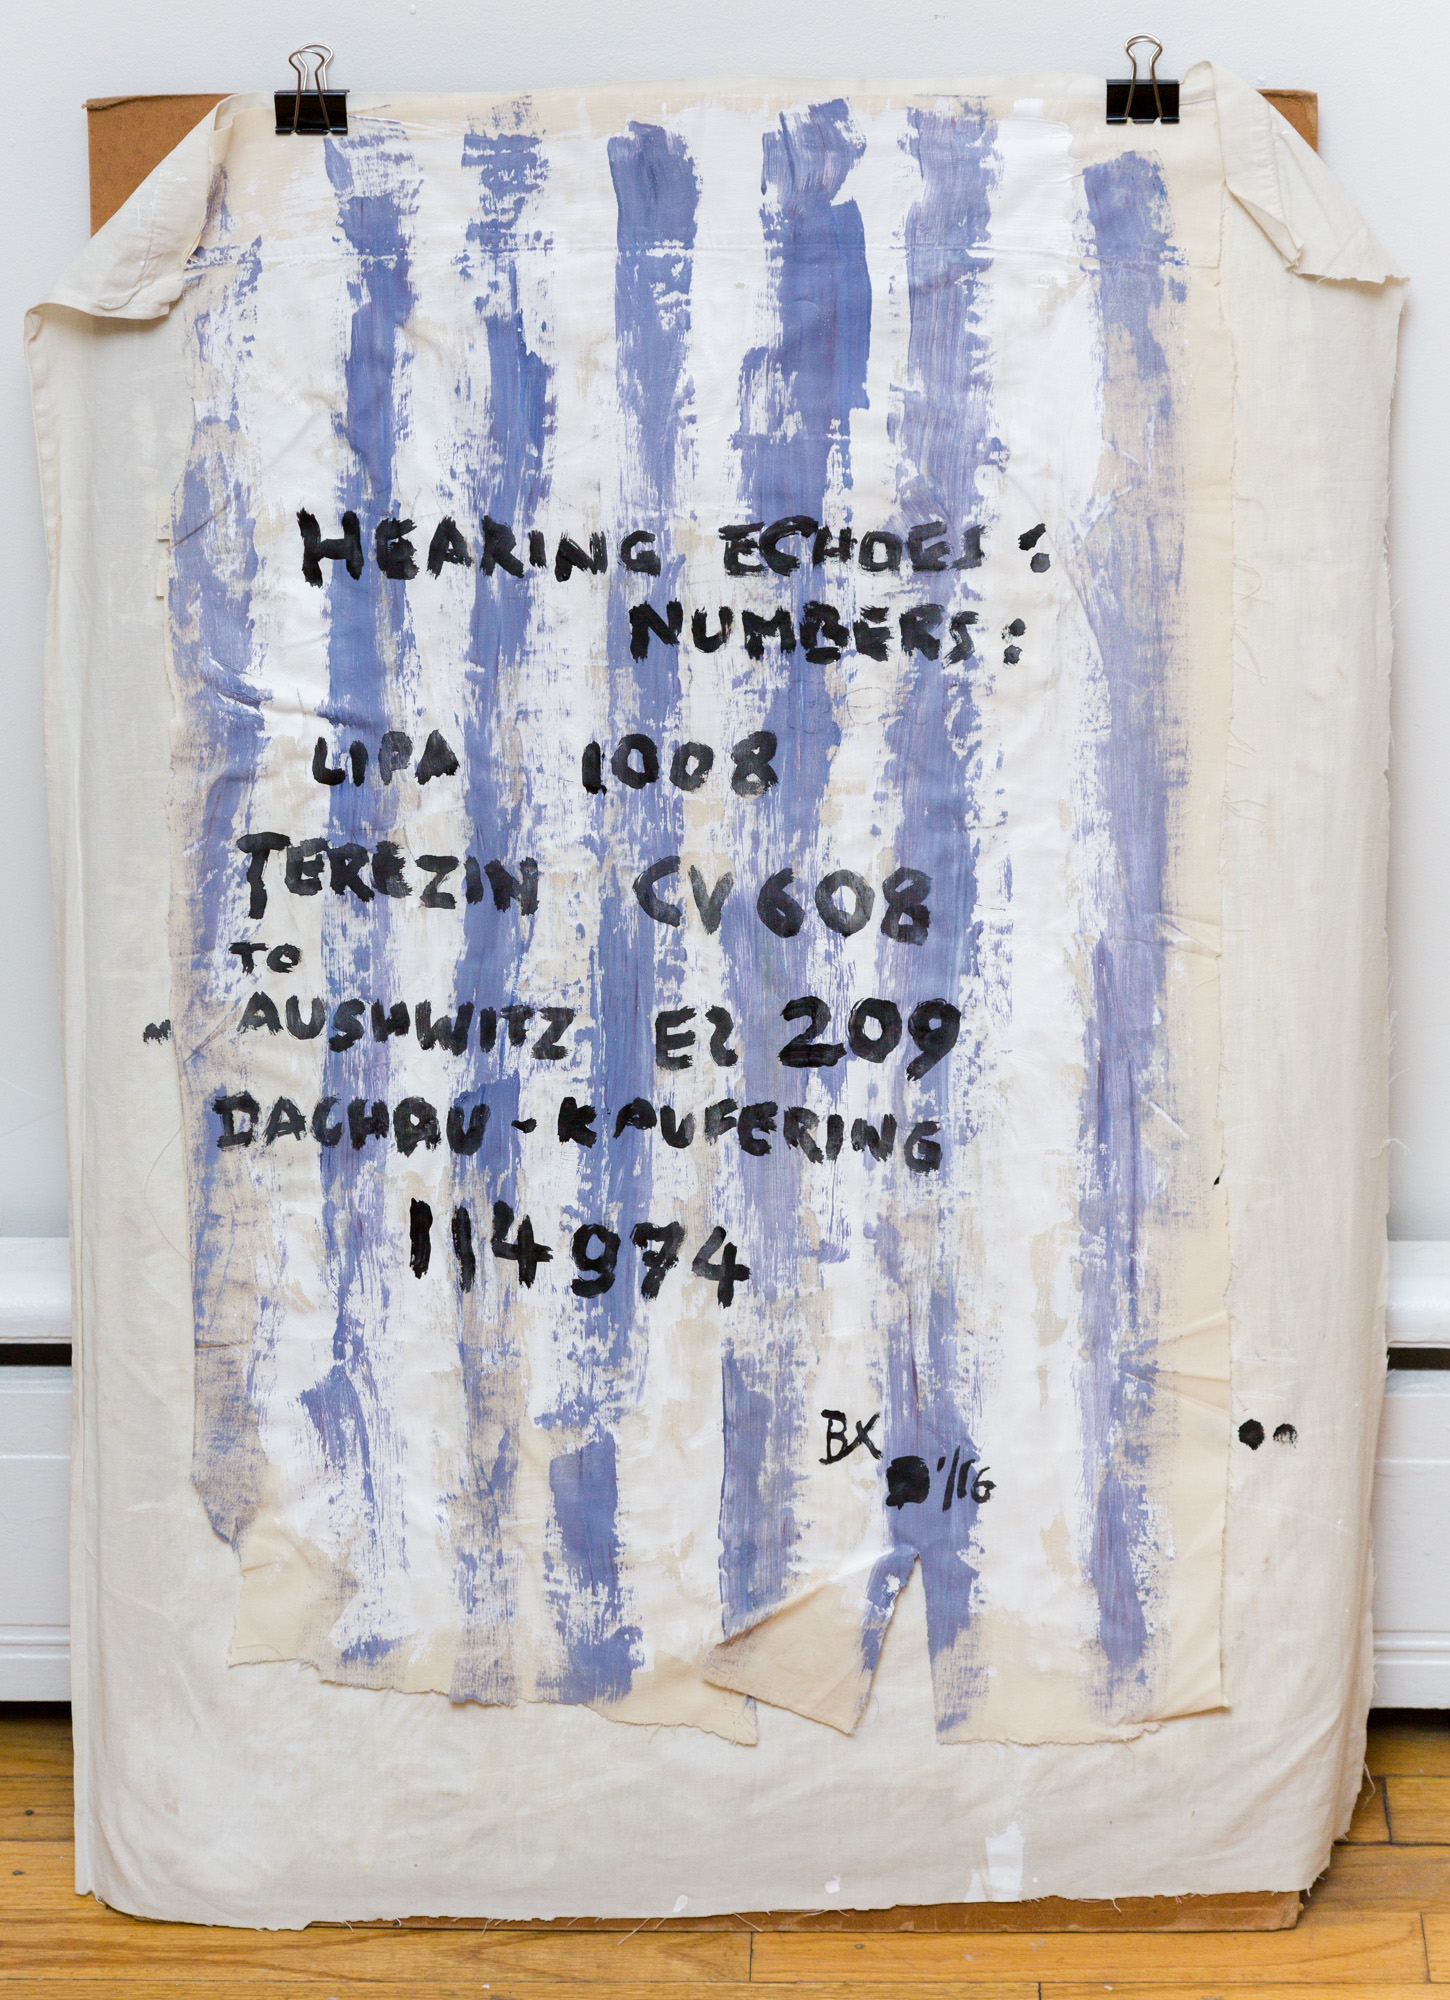 HEARING ECHOES:
NUMBERS:
LIPA 1008
TEREZIN CV 608
TO
AUSHWITZ ES 209
DACHAU-KAUFERING
114974
BX
'/16